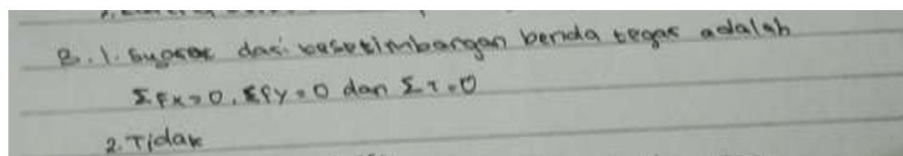 B. 1. Syarat dari kesetimbangan benda tegar adalah
ΣFx = 0, ΣFy = 0 dan Στ = 0
2. Tidak